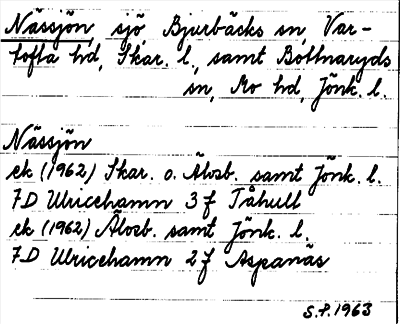 Nässjön, sjö, Bjurbäcks sn, Var-
tofta hd, Skar. l., samt Bottnaryds
sn, Mo hd, Jönk. l.
Nässjön
ek (1962) Skar. o. Älvsb. samt Jönk. l.
7D Ulricehamn 3f Tåhult
ek (1962) Älvsb. samt Jönk. l.
7D Ulricehamn 2f Aspanäs
S.P. 1963